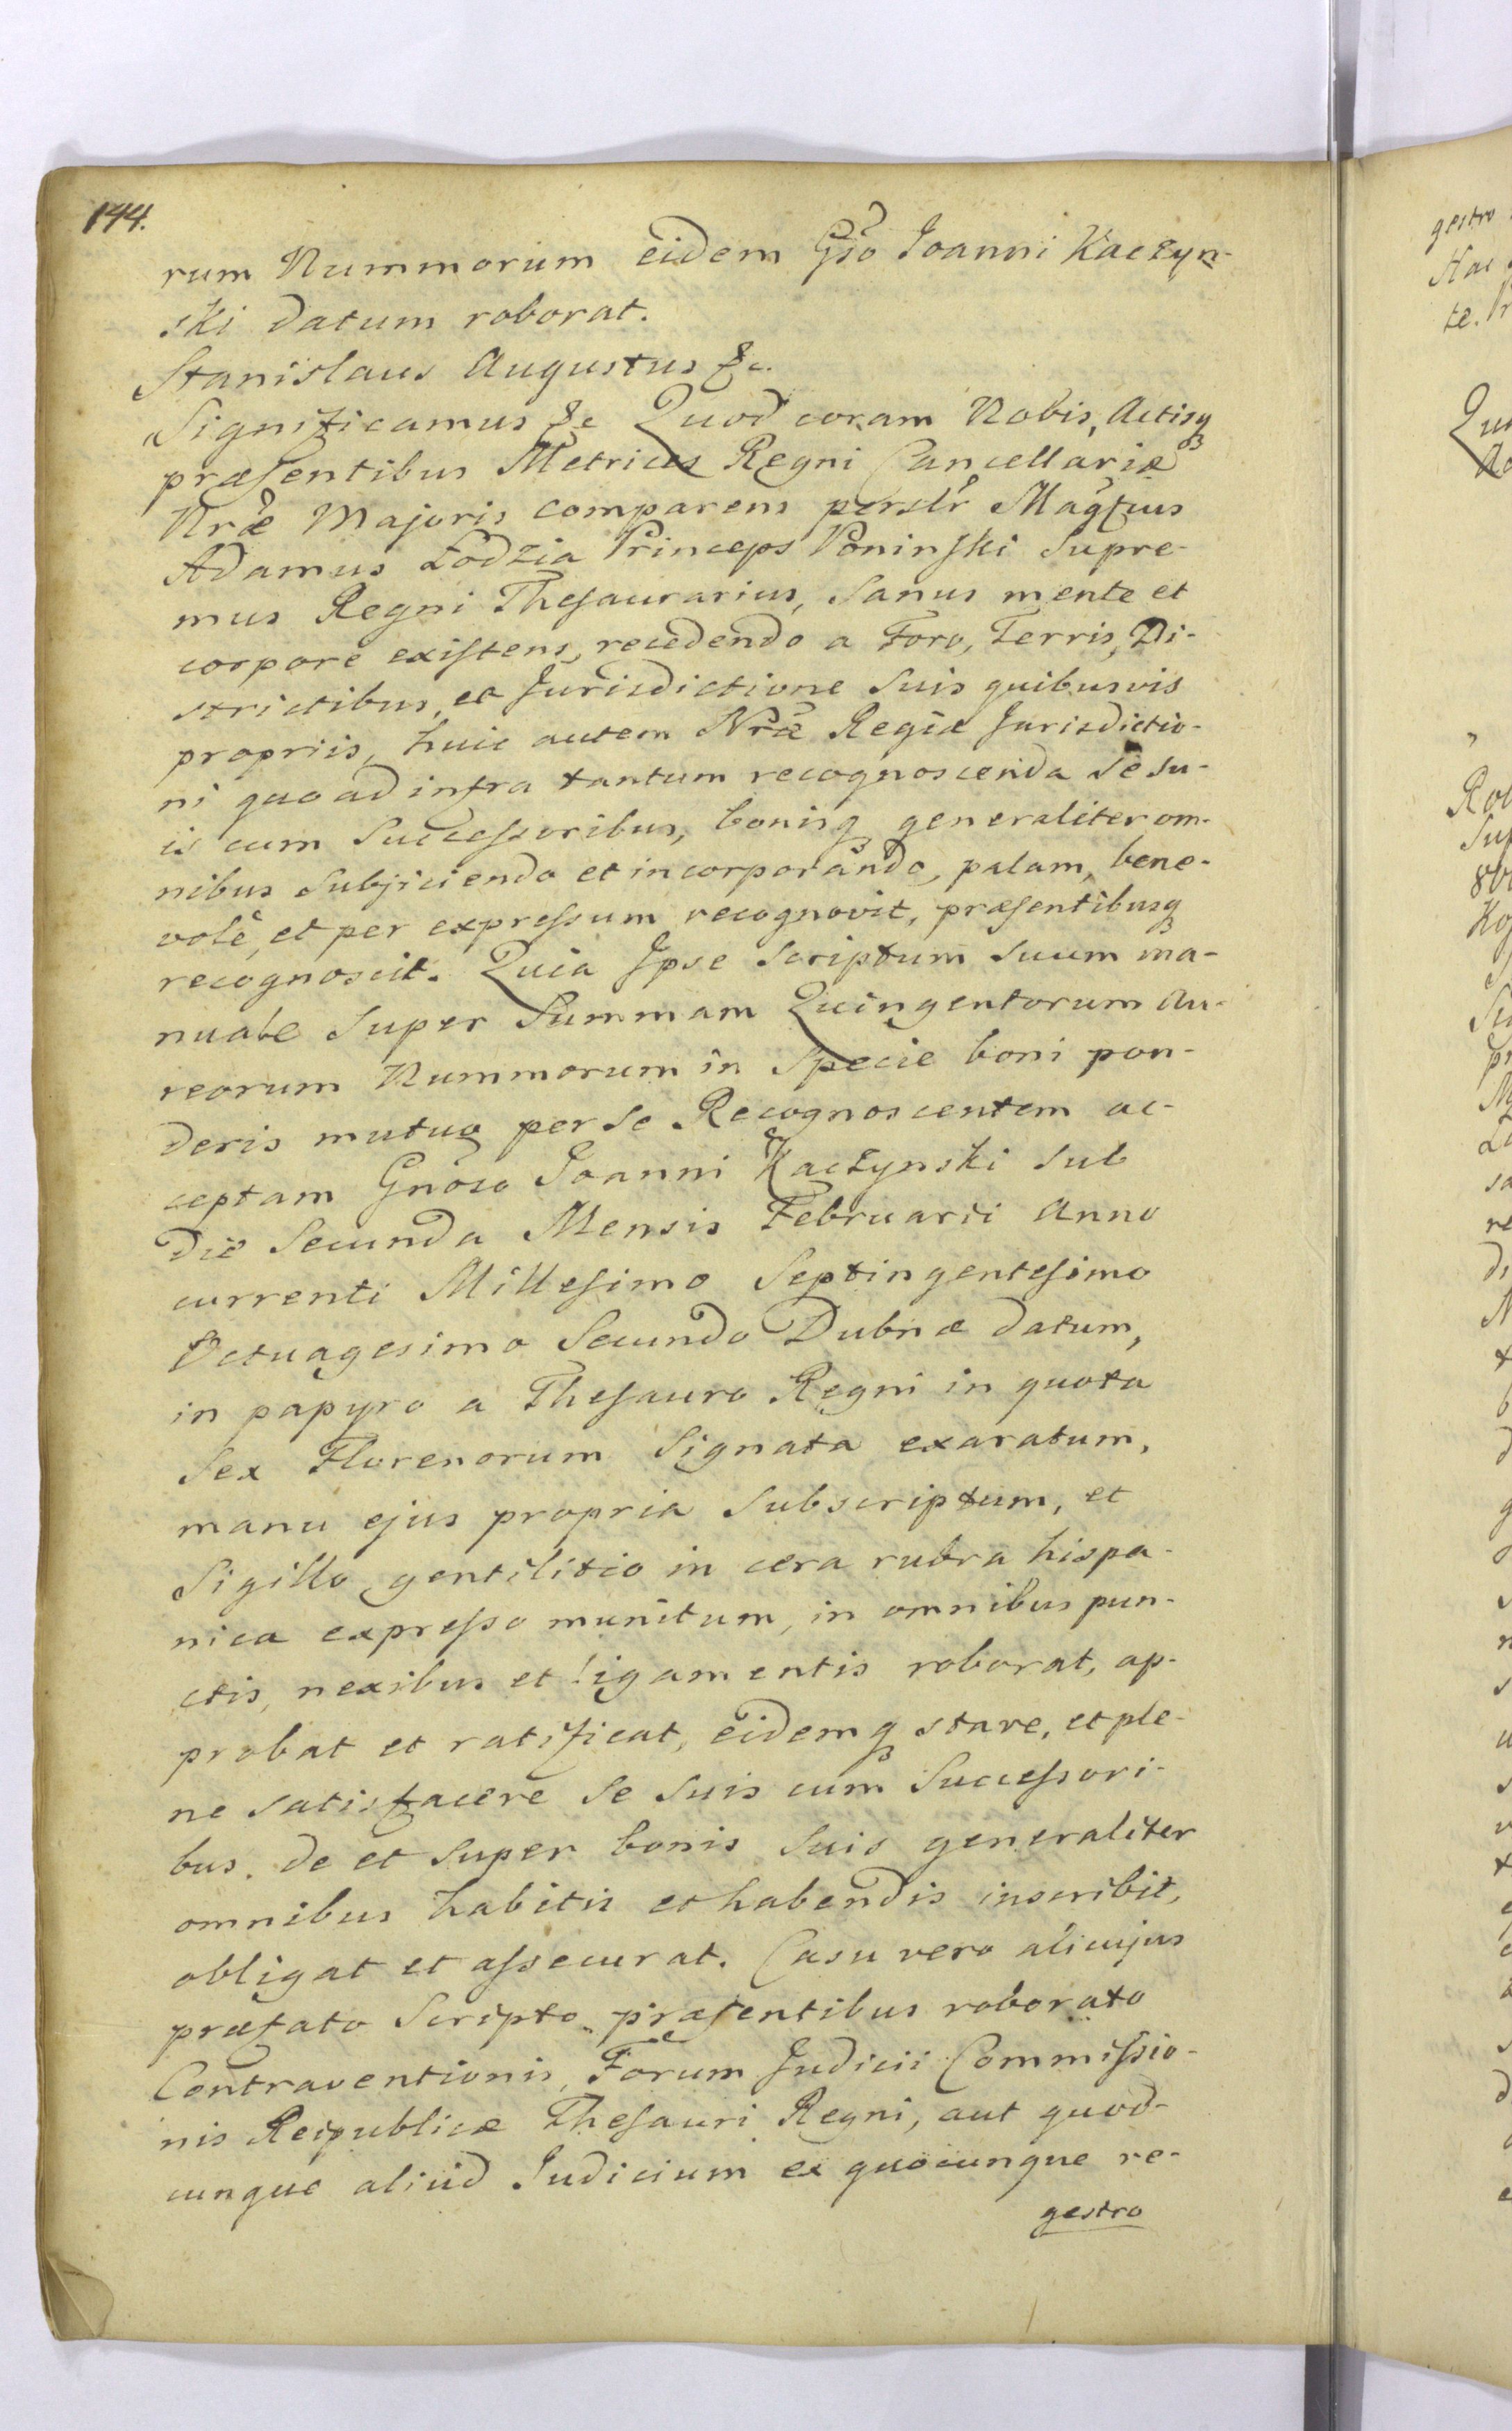 144.
rum Nummorum eidem Gso Joanni Kaczyn-
ski datum roborat.
Stanislaus Augustus &c.
Significamus &c Quod coram Nobis, Actisq
præsentibus Metrices Regni Cancellariæ
Nræ Majoris comparens perslr Magfcus
Adamus Łodzia Princeps Poninski Supre-
mus Regni Thesaurarius, Sanus mente et
corpore existens, recedendo a Foro, Terris, Di-
strictibus, et Jurisdictione Suis quibusvis
propriis, huic autem Nræ Regiæ Jurisdictio-
ni quoad infra tantum recognoscenda Se su-
is cum Successoribus, bonisq generaliter om-
nibus Subjiciendo et incorporando, palam, bene-
volè, et per expressum recognovit, præsentibusq
recognoscit. Quia Ipse Scriptum Suum ma-
nuale Super Summam Quingentorum Au-
reorum Nummorum in Specie boni pon-
deris mutuo per Se Recognoscentem ac-
ceptam Gnoso Joanni Kaczynski Sub
die Secunda Mensis Februarii Anno
currenti Millesimo Septingentesimo
Octuagesimo Secundo Dubnæ datum,
in papyro a Thesauro Regni in quota
Sex Florenorum Signata exaratum,
manu ejus propria Subscriptum, et
Sigillo gentilitio in cera rubra hispa-
nica expresso munitum, in omnibus pun-
ctis, nexibus et ligamentis roborat, ap-
probat et ratificat, eidemq stare, et ple-
ne satisfacere Se Suis cum Successori-
bus. de et Super bonis Suis generaliter
omnibus habitis et habendis inscribit,
obligat et assecurat. Casu vero alicujus
præfato Scripto præsentibus roborato
Contraventionis, Forum Judicii Commissio-
nis Reipublicæ Thesauri Regni, aut quod-
cunque aliud Judicium ex quocunque re-
gestro
gestro
Hac
te.